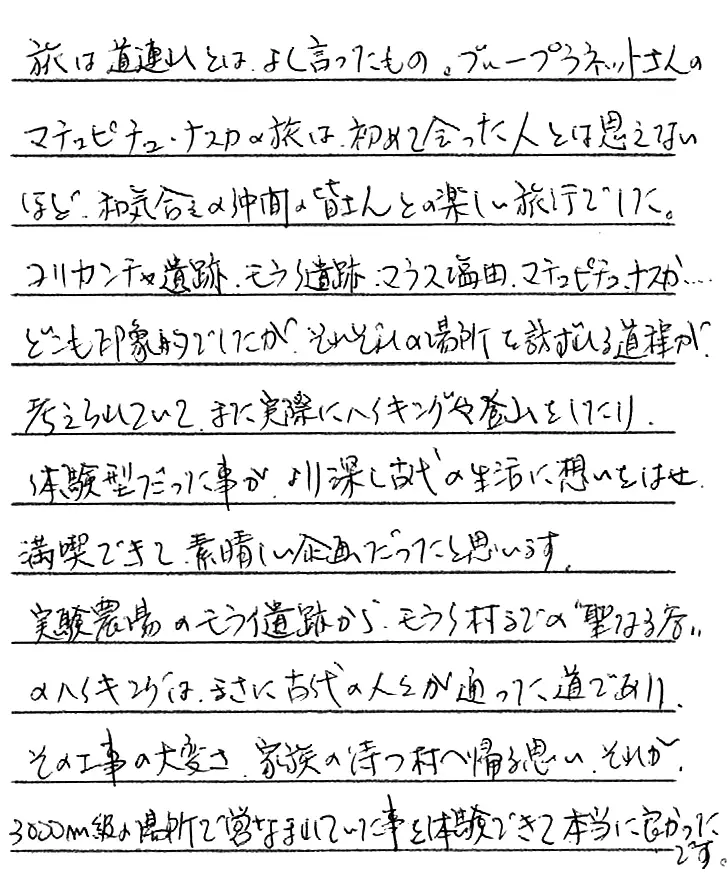 旅は道連れとは、よく言ったもの。ブループラネットさんの
マチュピチュ・ナスカの旅は、初めて会った人とは思えない
ほど、和気合々の仲間の皆さんとの楽しい旅行でした。
コリカンチャ遺跡、モライ遺跡、マラス塩田、マチュピチュ、ナスカ…
どこも印象的でしたが、それぞれの場所を訪ずれる道程が、
考えられていて、また実際にハイキングや登山をしたり、
体験型だった事が、より深く古代の生活に想いをはせ、
満喫できて、素晴しい企画だったと思います。
実験農場のモライ遺跡から、モライ村までの"聖なる谷"
のハイキングは、まさに古代の人々が通った道であり、
その工事の大変さ、家族の待つ村へ帰る思い、それが、
3000m級の場所で営なまれていた事を体験できて本当に良かった
です。